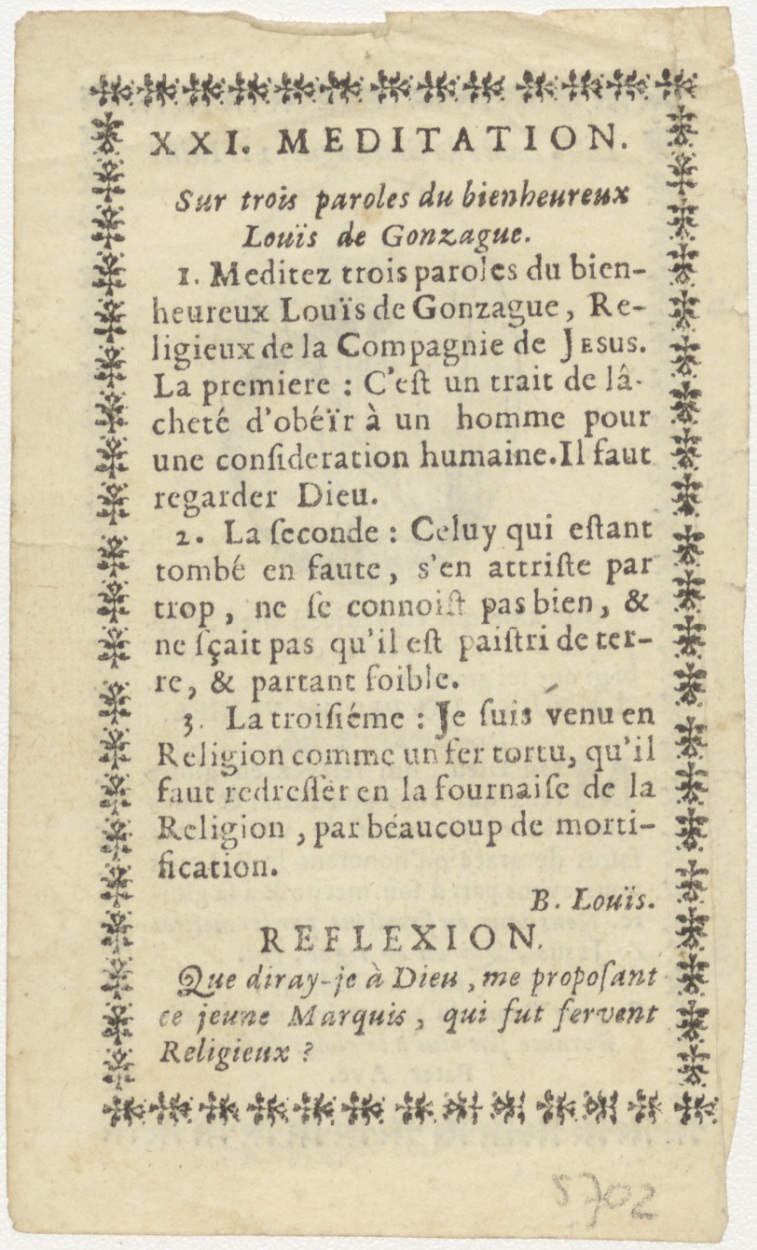 XXI. MEDITATION.
Sur trois paroles du bienheureux
Louïs de Gonzague.
1. Meditez trois paroles du bien-
heureux Louïs de Gonzague, Re-
ligieux de la Compagnie de JESUS.
La premiere : C'eſt un trait de lâ-
cheté d'obéïr à un homme pour
une conſideration humaine. Il faut
regarder Dieu.
2. La ſeconde : Celuy qui eſtant
tombé en faute, s'en attriſte par
trop, ne ſe connoiſt pas bien, &
ne ſçait pas qu'il eſt paiſtri de ter-
re, & partant foible.
3. La troiſiéme : Je ſuis venu en
Religion comme un fer tortu, qu'il
faut redreſſer en la fournaiſe de la
Religion, par beaucoup de morti-
fication.
B. Louïs.
REFLEXION.
Que diray-je à Dieu, me propoſant
ce jeune Marquis, qui fut fervent
Religieux ?
5702